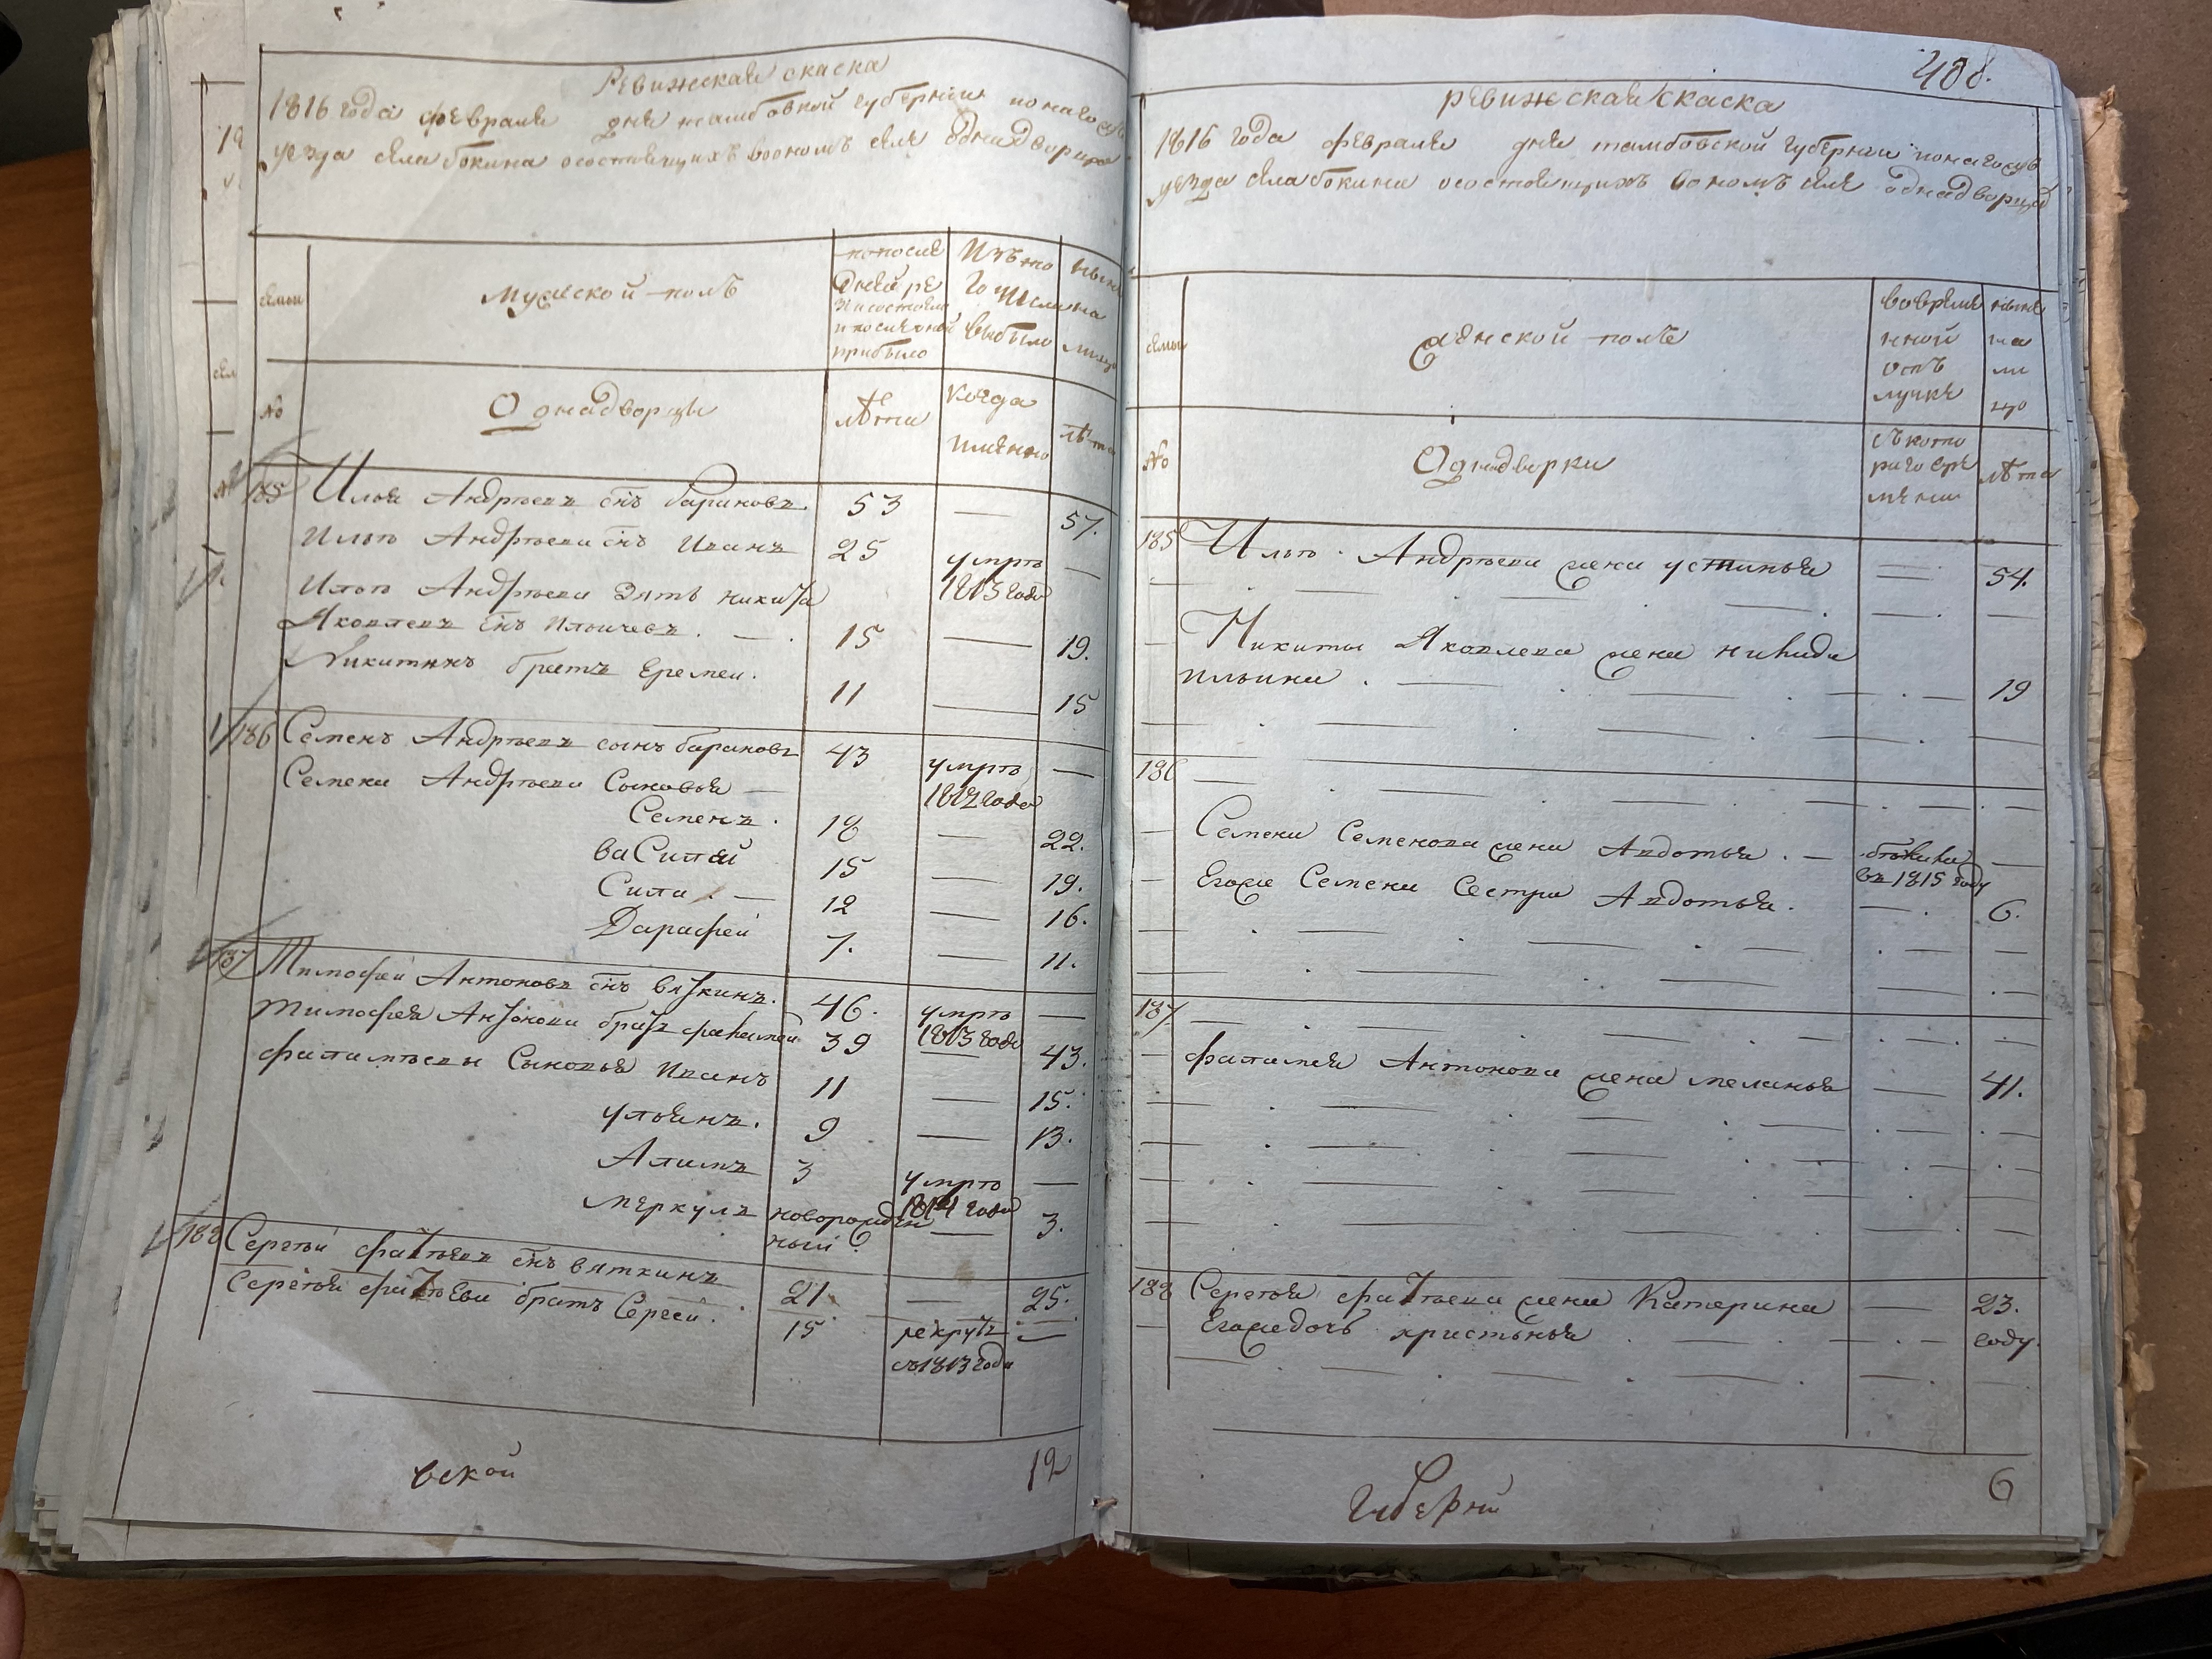 Ревижская скаска
1816 года февраля дня тамбовской губернии
уезда села бокина осостоящихъ воономъ селе однадворцах
семьи
мужской полъ
попосле
дней ре
визи состояло
и после оной
прибыло
Изъ то
го числа
выбыло
ныне
на
лицо
№
Однадворцы
лета
Когда
имянно
лета
185 Илья Андреевъ снъ барановъ. 53 — 57.
Ильи Андреева снъ Иванъ 25 умре —
1813 года
Ильи Андреева зять никита
Яковлевъ снъ Ильичевъ. — 15 — 19.
Никитинъ братъ Еремеи. 11 — 15
186 Семенъ Андреевъ сынъ барановъ 43 умре —
Семена Андреева Сыновья — 1812 года
Семенъ. 18 — 22.
ваСилей 15 — 19.
Сила. — 12 — 16.
Дарафей 7. — 11.
187 Тимофей Антоновъ снъ вяткинъ. 46. умре —
1813 года
Тимофея Антонова братъ фаламей 39 — 43.
фаламеевы Сыновья Иванъ 11 — 15.
ульянъ. 9 — 13.
Алимъ 3 умре —
1814 года
меркулъ новорожден
ный. — 3.
188 Сергей фатеевъ снъ вяткинъ 21. — 25.
Сергея фатеева братъ Сергей. 15 рекрутъ —
съ 1813 года
вской 12
408.
ревижская скаска
1816 года февраля дня тамбовской губернии
уезда села бокина осостоящихъ вономъ селе однадворцах
семьи
женской полъ
вовреме
нной
отъ
лучке
ныне
на
ли
цо
№
Однадворки
съ кото
раго вре
мени
лета
185 Ильи Андреева жена устинья — 54.
Никиты Яковлева жена
ильина. — 19
186
Семена Семенова жена Авдотья. — бежала —
въ 1815 году
Егоже Семена Сестра Авдотья. — 6.
187
фаламея Антонова жена меланья — 41.
188 Сергея фатеева жена Катерина — 23.
Егоже дочь христинья году.
губерни 6